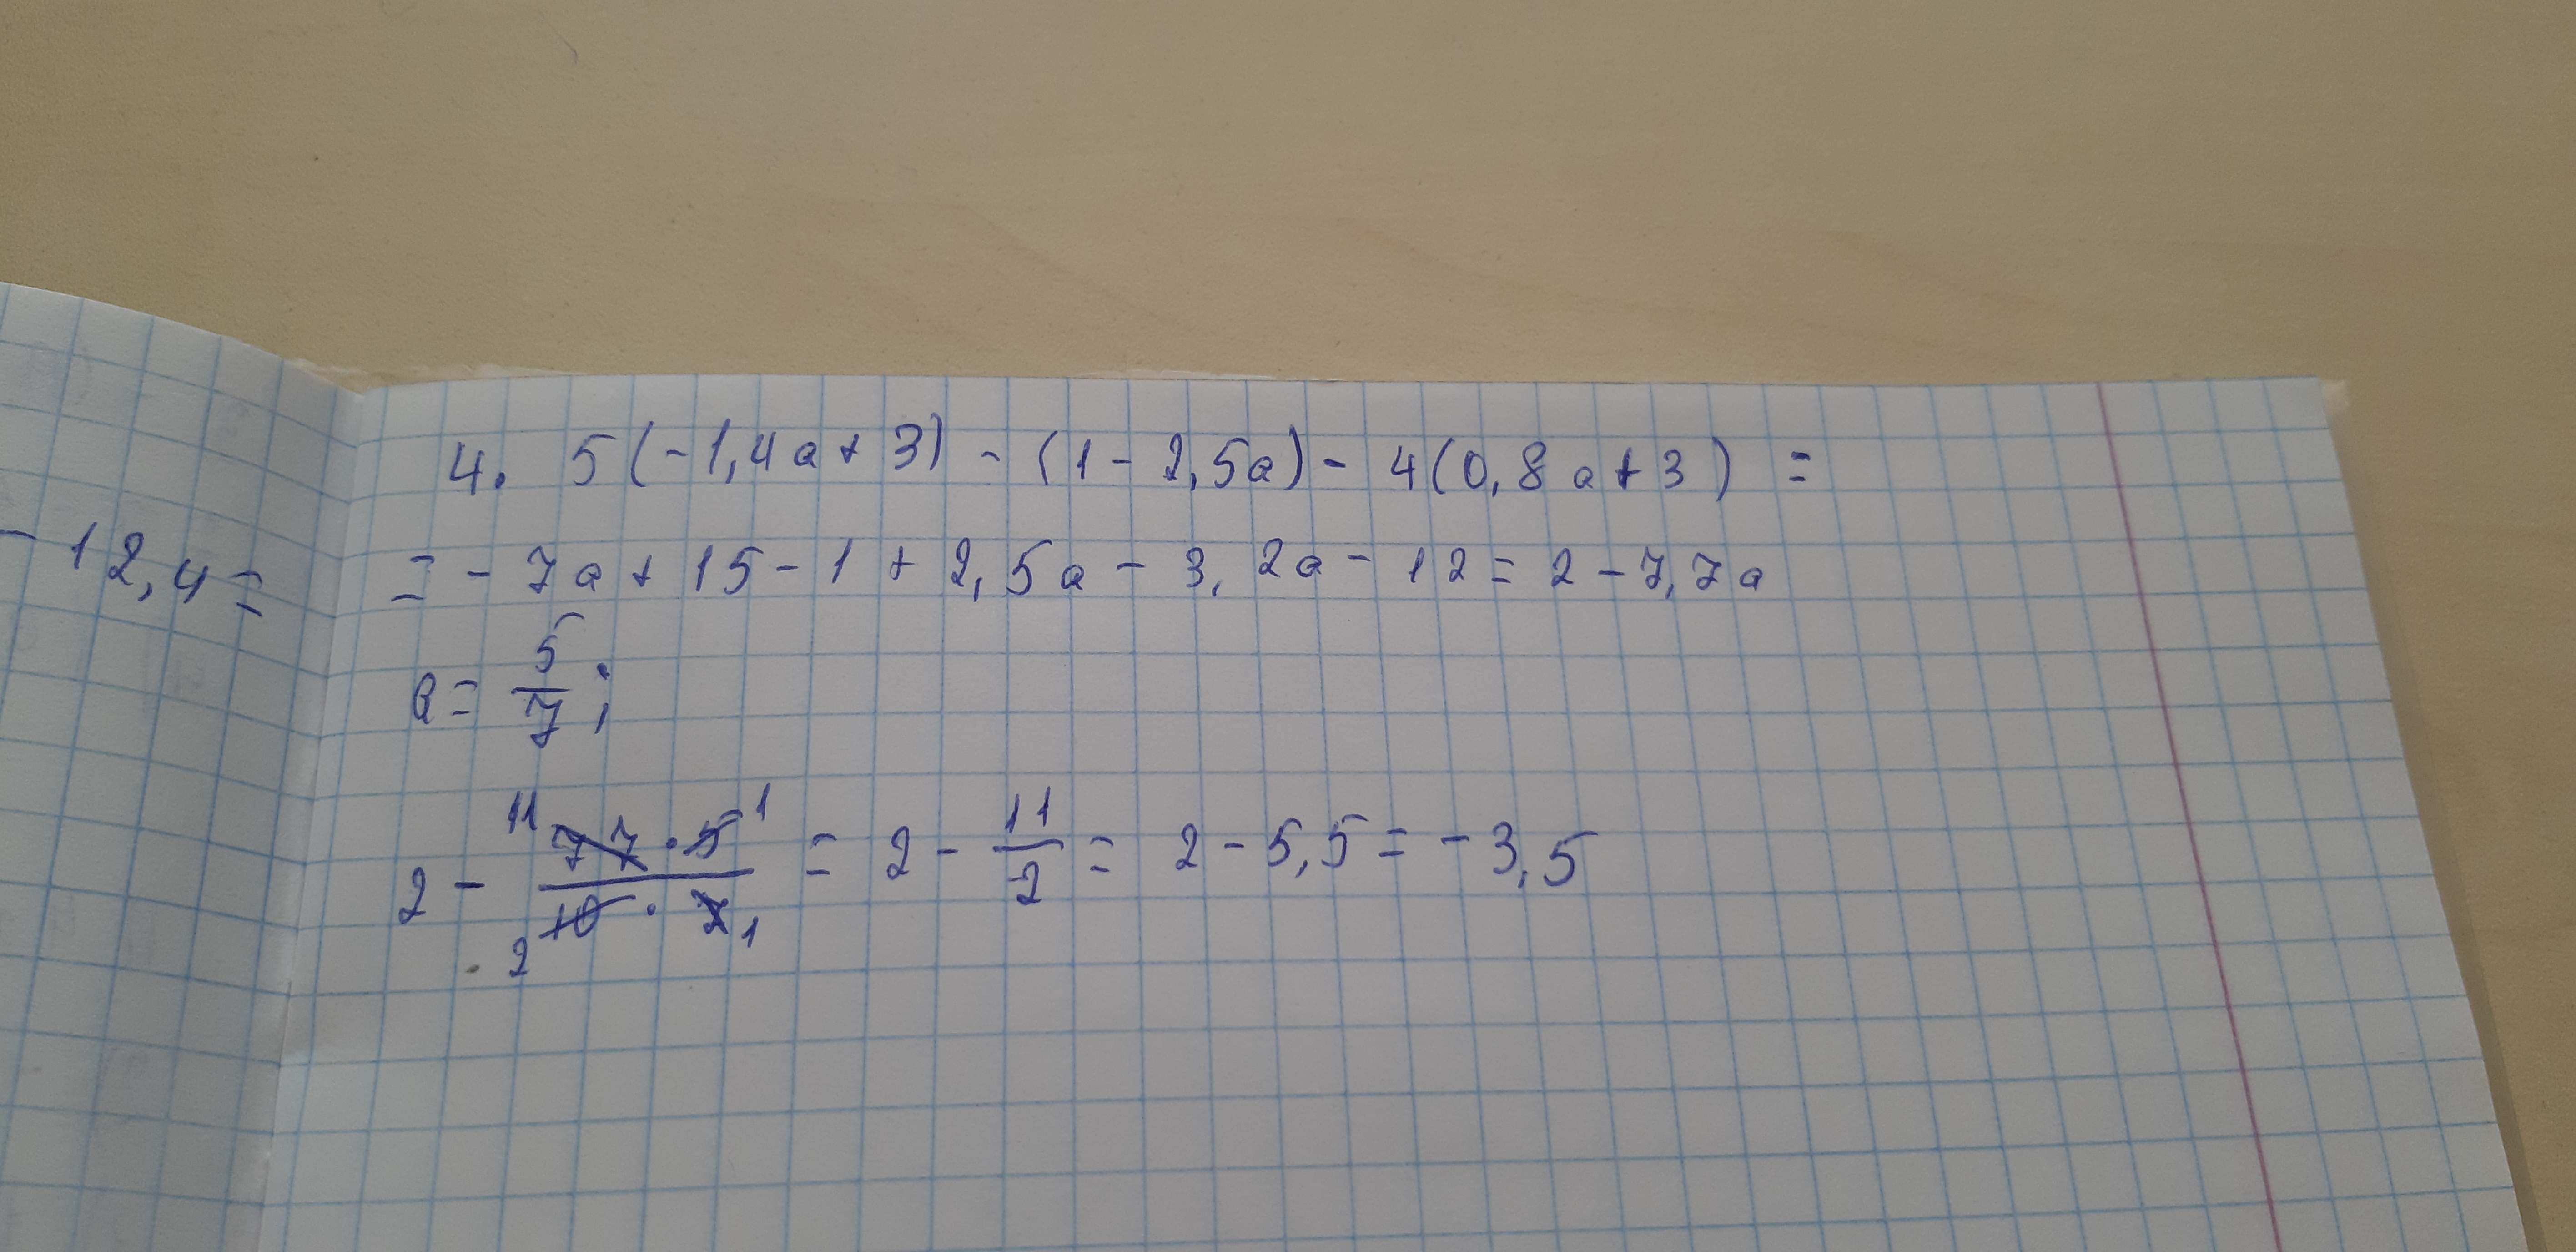 4. 5(-1,4a+3) - (1-2,5a) - 4(0,8a+3) =
-12,4=
= -7a+15-1+2,5a-3,2a-12=2-7,7a
a= 5/7;
2 - (11 77·5 1)/(2 10·7 1) = 2 - 11/2 = 2-5,5=-3,5